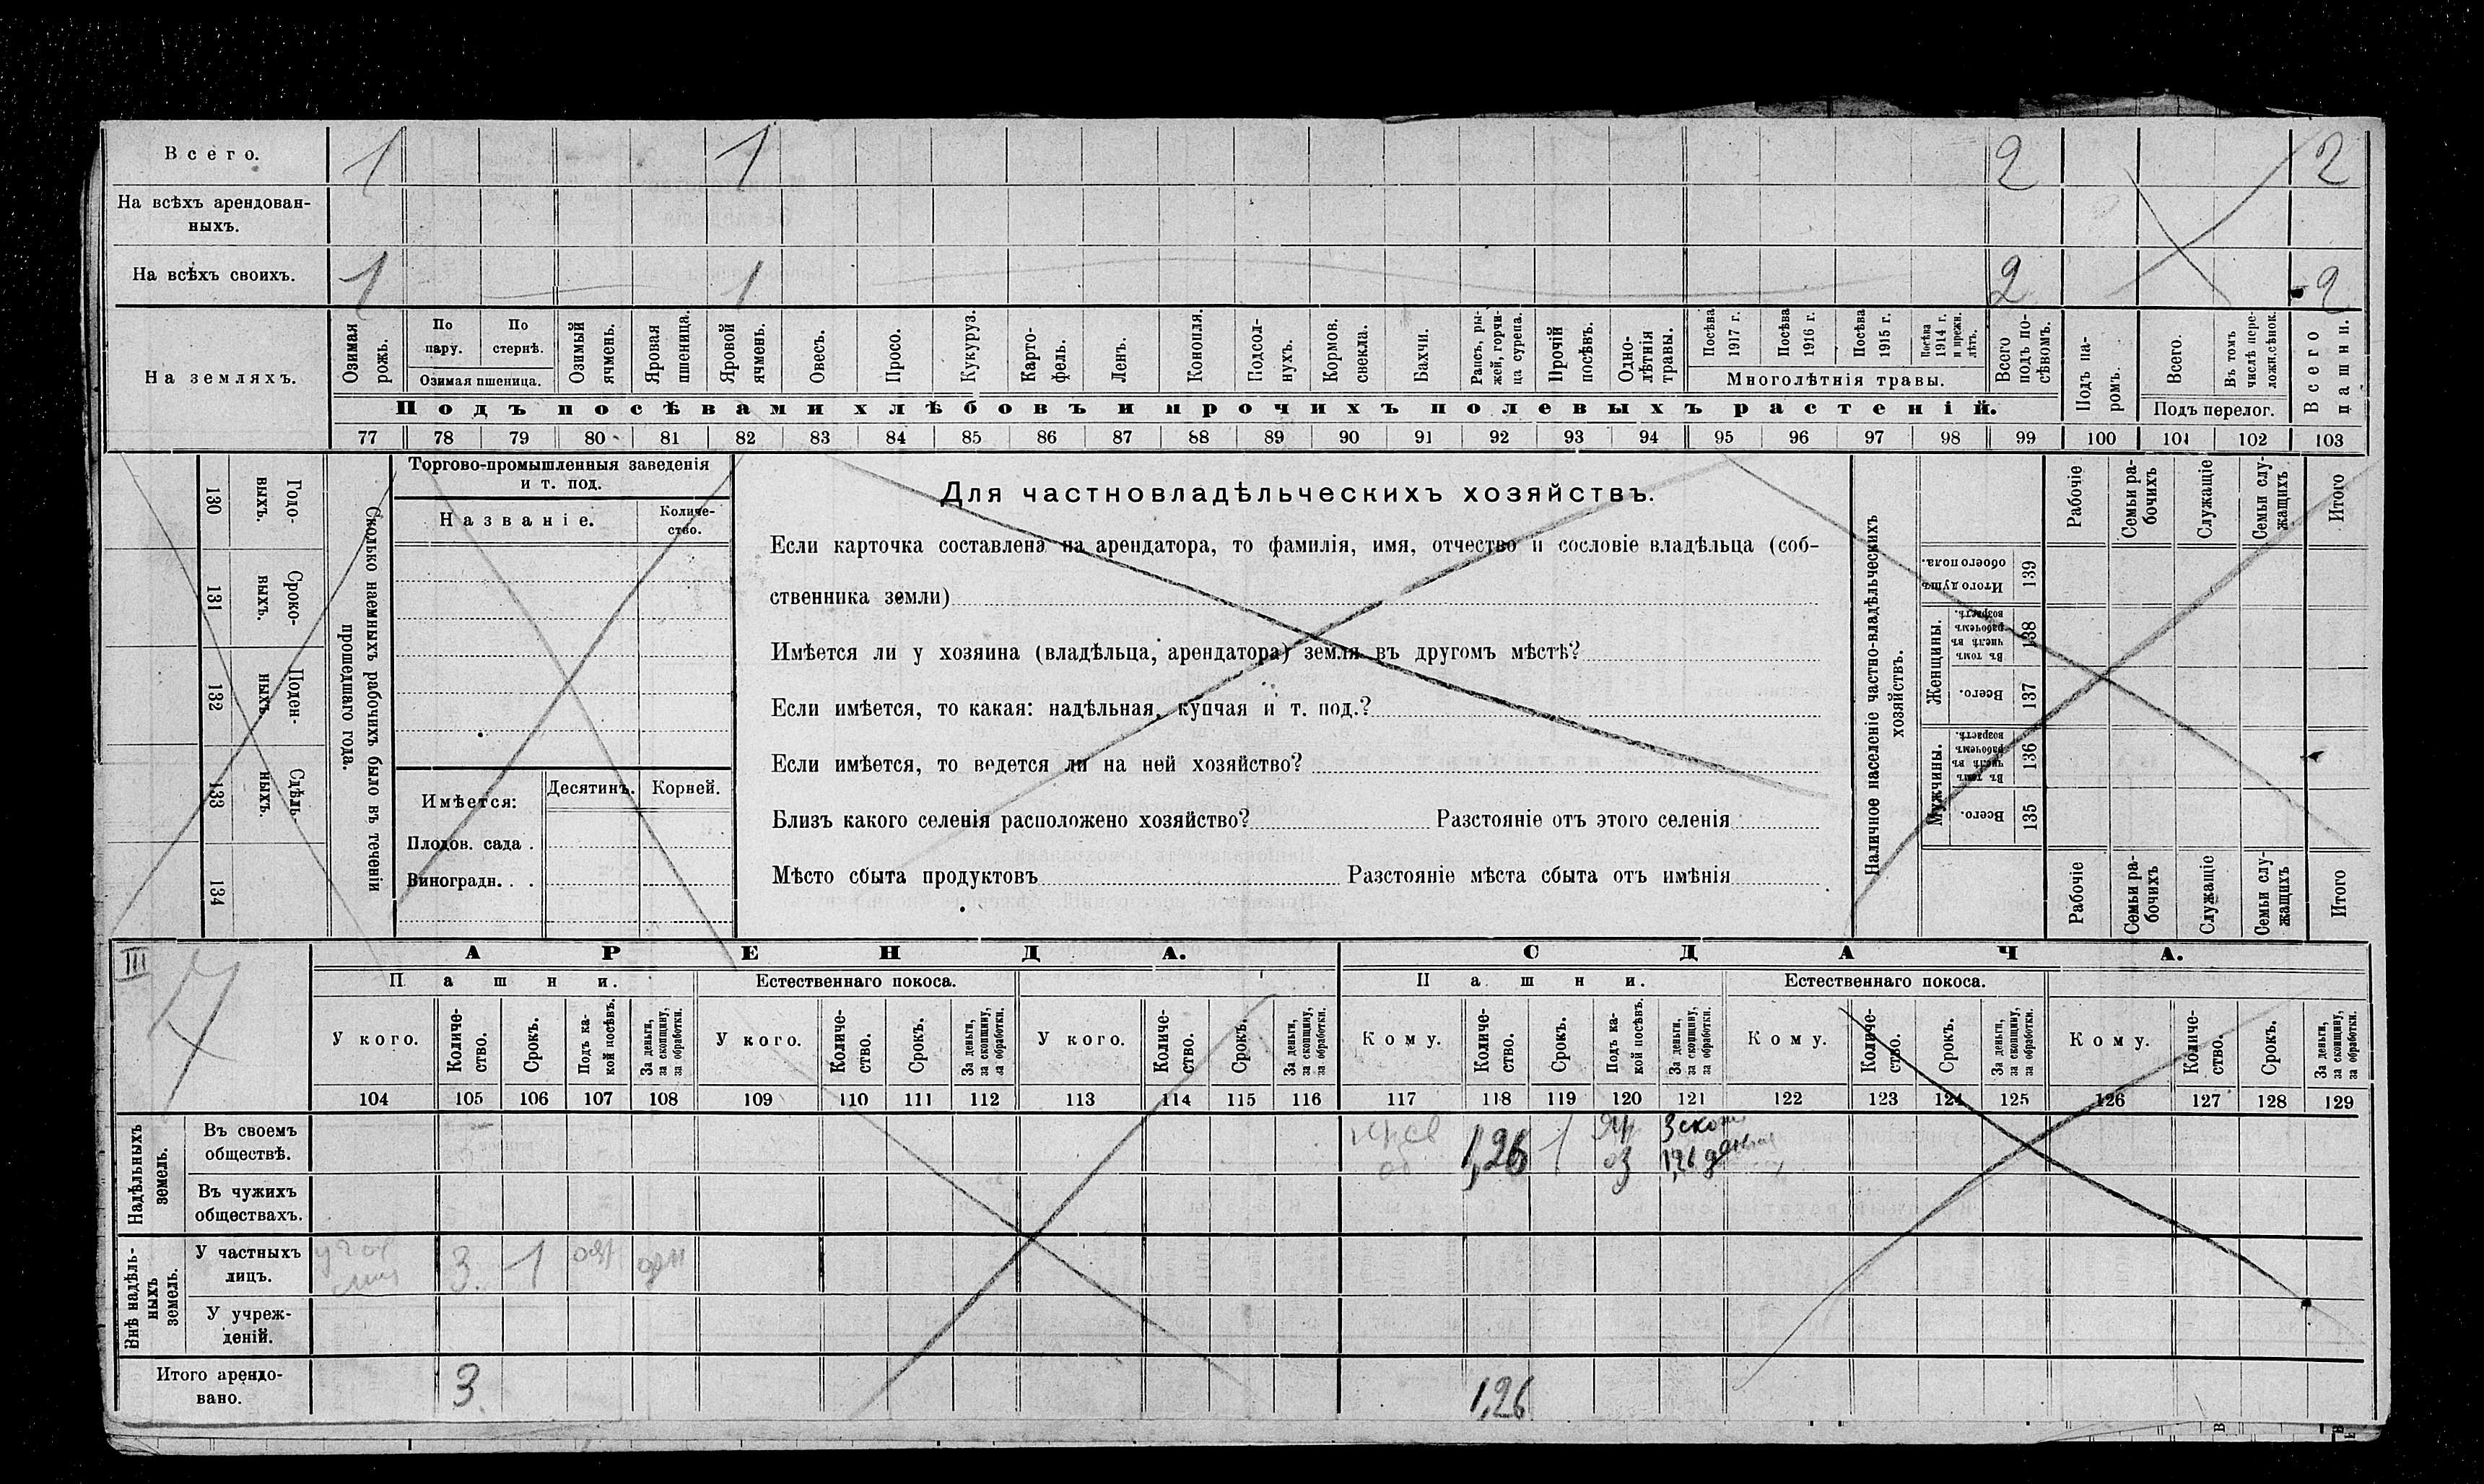 Всего. 1 1 2 2
На всѣхъ арендован-
ныхъ.
На всѣхъ своихъ. 1 1 2 2
На земляхъ.
Озимая рожь.
По пару.
По стернѣ.
Озимая пшеница.
Озимый ячмень.
Яровая пшеница.
Яровой ячмень.
Овесъ.
Просо.
Кукуруз.
Карто-
фель.
Ленъ.
Конопля.
Подсол-
нухъ.
Кормов.
свекла.
Бахчи.
Рапсъ, ры-
жей, горчи-
ца сурепа.
Прочій
посѣвъ.
Одно-
лѣтнія
травы.
Посѣва
1917 г.
Посѣва
1916 г.
Посѣва
1915 г.
Посѣва
1914 г.
и прежн.
лѣтъ.
Многолѣтнія травы.
Всего
подъ по-
сѣвомъ.
Подъ па-
ромъ.
Всего.
Въ томъ
числѣ пере-
ложн.сѣнок.
Подъ перелог.
Всего
пашни.
Подъ посѣвами хлѣбовъ и прочихъ полевыхъ растеній.
77 78 79 80 81 82 83 84 85 86 87 88 89 90 91 92 93 94 95 96 97 98 99 100 101 102 103
130 Годо-
выхъ.
131 Сроко-
выхъ.
132 Поден-
ныхъ
133 Сдѣль-
ныхъ.
134
Сколько наемныхъ рабочихъ было въ теченіи
прошедшаго года.
Торгово-промышленныя заведенія
и т. под.
Названіе.
Количе-
ство.
Имѣется:
Десятинъ.
Корней.
Плодов. сада .
Виноградн. . .
Для частновладѣльческихъ хозяйствъ.
Если карточка составлена на арендатора, то фамилія, имя, отчество и сословіе владѣльца (соб-
ственника земли)
Имѣется ли у хозяина (владѣльца, арендатора) земля въ другомъ мѣстѣ?
Если имѣется, то какая: надѣльная, купчая и т. под.?
Если имѣется, то ведется ли на ней хозяйство?
Близъ какого селенія расположено хозяйство? Разстояніе отъ этого селенія
Мѣсто сбыта продуктовъ Разстояніе мѣста сбыта отъ имѣнія
Наличное населеніе частно-владѣльческихъ
хозяйствъ.
Рабочіе
Семьи ра-
бочихъ
Служащіе
Семьи слу-
жащихъ
Итого
Итого душъ
обоего пола.
139
Женщины.
Въ томъ
числѣ въ
рабочемъ
возрастѣ.
138
Всего.
137
Мужчины.
Въ томъ
числѣ въ
рабочемъ
возрастѣ.
136
Всего.
135
Рабочіе
Семьи ра-
бочихъ
Служащіе
Семьи слу-
жащихъ
Итого
III
АРЕНДА. СДАЧА.
Пашни. Естественнаго покоса. Пашни. Естественнаго покоса.
У кого.
Количе-
ство.
Срокъ.
Подъ ка-
кой посѣвъ.
За деньги,
за скопщину,
за обработки.
У кого.
Количе-
ство.
Срокъ.
За деньги,
за скопщину,
за обработки.
У кого.
Количе-
ство.
Срокъ.
За деньги,
за скопщину,
за обработки.
Кому.
Количе-
ство.
Срокъ.
Подъ ка-
кой посѣвъ.
За деньги,
за скопщину,
за обработки.
Кому.
Количе-
ство.
Срокъ.
За деньги,
за скопщину,
за обработки.
Кому.
Количе-
ство.
Срокъ.
За деньги,
за скопщину,
за обработки.
104 105 106 107 108 109 110 111 112 113 114 115 116 117 118 119 120 121 122 123 124 125 126 127 128 129
Надѣльныхъ
земель.
Въ своемъ
обществѣ.
об 1,26 1 яр оз 3 скоп
1,26
Въ чужихъ
обществахъ.
Внѣ надѣль-
ныхъ
земель.
У частныхъ
лицъ.
3 1
У учреж-
деній.
Итого арендо-
вано.
3. 1,26